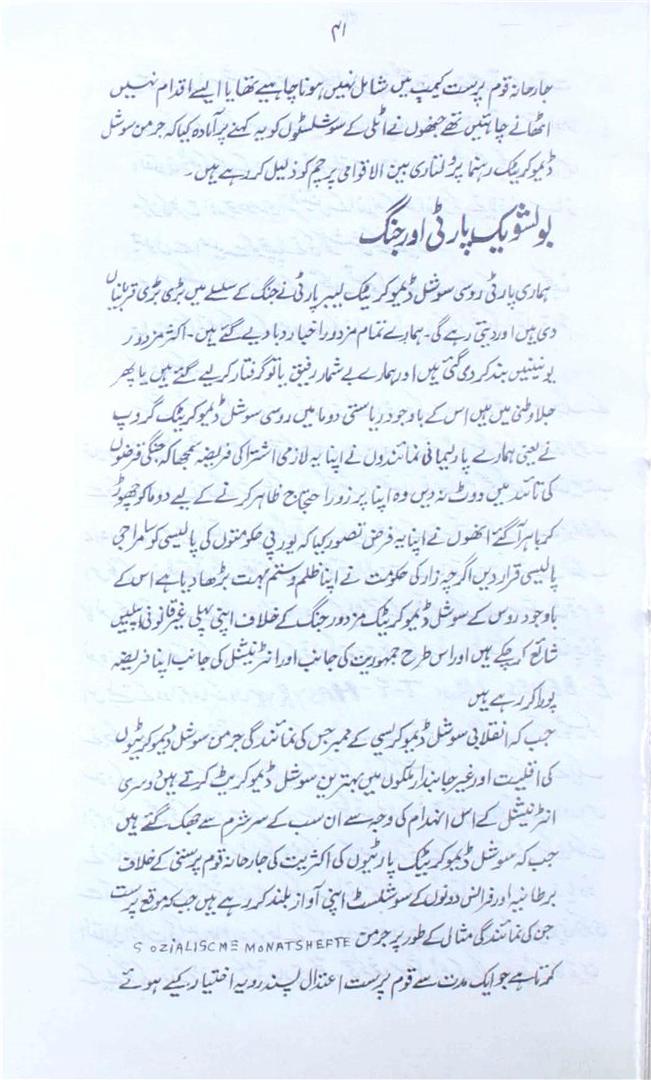 ۴۱
جارحانہ قوم پرست کیمپ میں شامل نہیں ہونا چاہیے تھا یا ایسے اقدام نہیں
اٹھانے چاہئیں تھے جنھوں نے اٹلی کے سوشلسٹوں کو یہ کہنے پر آمادہ کیا کہ جرمن سوشل
ڈیموکریٹک رہنما پرولتاری بین الاقوامی پرچم کو ذلیل کر رہے ہیں۔
بولشویک پارٹی اور جنگ
ہماری پارٹی روسی سوشل ڈیموکریٹک لیبر پارٹی نے جنگ کے سلسلے میں بڑی بڑی قربانیاں
دی ہیں اور دیتی رہے گی۔ ہمارے تمام مزدور اخبار دبا دیے گئے ہیں۔ اکثر مزدور
یونینیں بند کر دی گئی ہیں اور ہمارے بے شمار رفیق یا تو گرفتار کر لیے گئے ہیں یا پھر
جلاوطنی میں ہیں اس کے باوجود ریاستی دوما میں روسی سوشل ڈیموکریٹک گروپ
نے یعنی ہمارے پارلیمانی نمائندوں نے اپنا یہ لازمی اشتراکی فریضہ سمجھا کہ جنگی قرضوں
کی تائید میں ووٹ نہ دیں وہ اپنا پر زور احتجاج ظاہر کرنے کے لیے دوما کو چھوڑ
کر باہر آ گئے انھوں نے اپنا یہ فرض تصور کیا کہ یورپی حکومتوں کی پالیسی کو سامراجی
پالیسی قرار دیں اگرچہ زار کی حکومت نے اپنا ظلم و ستم بہت بڑھا دیا ہے اس کے
باوجود روس کے سوشل ڈیموکریٹک مزدور جنگ کے خلاف اپنی پہلی غیر قانونی اپیلیں
شائع کر چکے ہیں اور اس طرح جمہوریت کی جانب اور انٹرنیشنل کی جانب اپنا فریضہ
پورا کر رہے ہیں
جب کہ انقلابی سوشل ڈیموکریسی کے ضمیر جس کی نمائندگی جرمن سوشل ڈیموکریٹوں
کی اقلیت اور غیر جانبدار ملکوں میں بہترین سوشل ڈیموکریٹ کرتے ہیں دوسری
انٹرنیشنل کے اس انہدام کی وجہ سے ان سب کے سر شرم سے جھک گئے ہیں
جب کہ سوشل ڈیموکریٹک پارٹیوں کی اکثریت کی جارحانہ قوم پرستی کے خلاف
برطانیہ اور فرانس دونوں کے سوشلسٹ اپنی آواز بلند کر رہے ہیں جب کہ موقع پرست
جن کی نمائندگی مثالی کے طور پر جرمن SOZIALISCME MONATSHEFTE
کرتا ہے جو ایک مدت سے قوم پرست اعتدال پسند رویہ اختیار کیے ہوئے